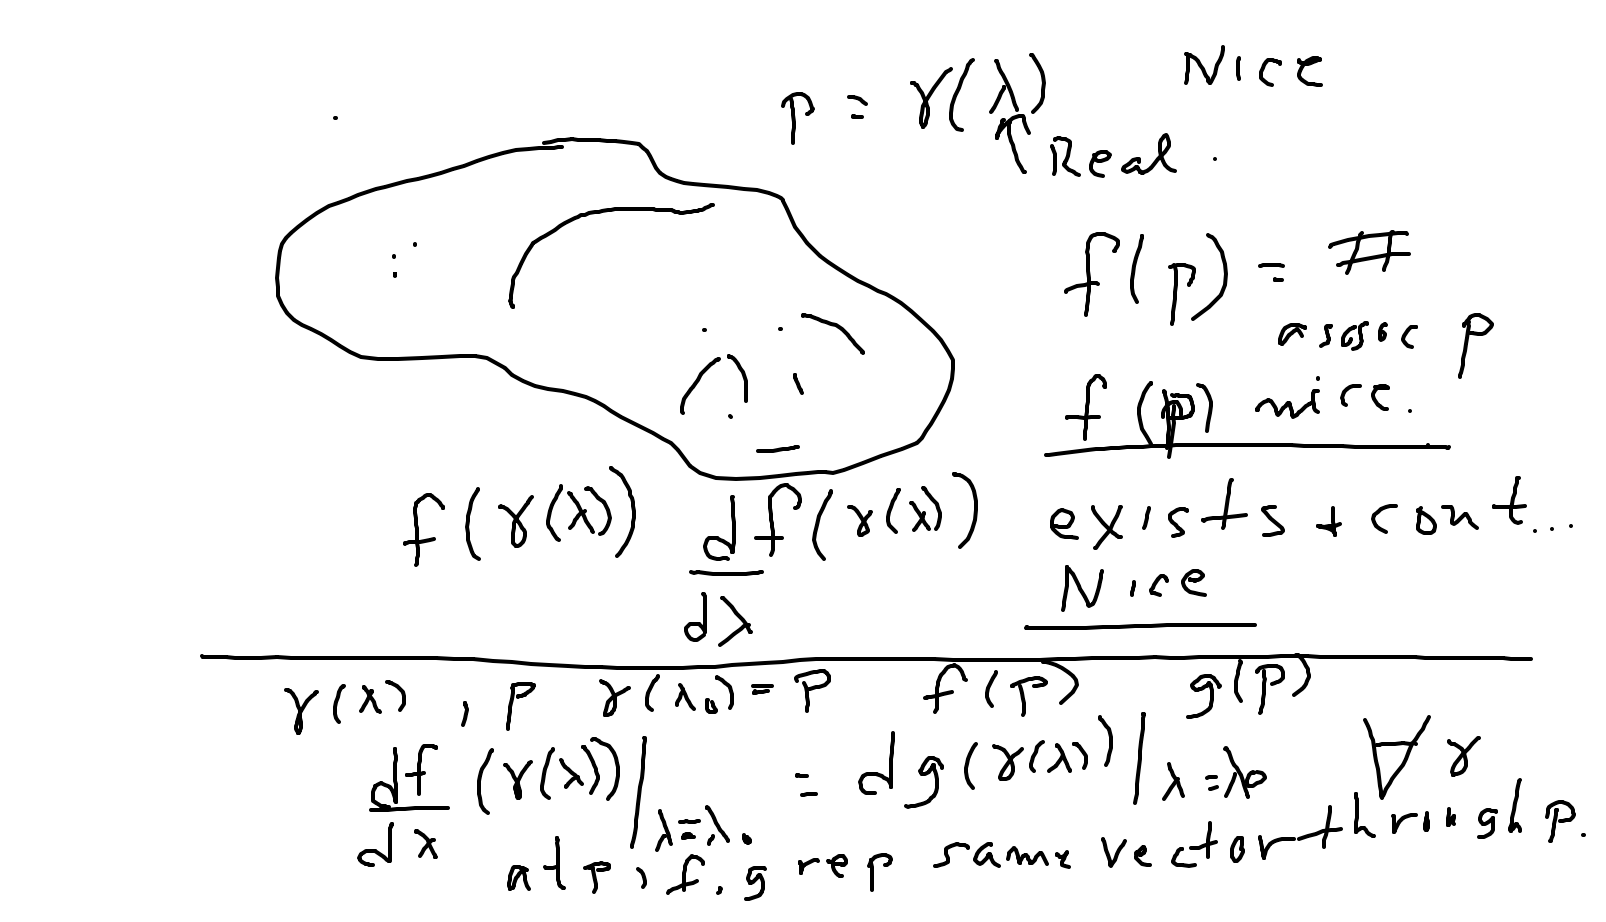 p = γ(λ) Nice
↑ Real.
f(p) = #
assoc p
f(p) nice.
f(γ(λ)) d/dλ f(γ(λ)) exists + cont...
Nice
γ(λ), p γ(λ₀) = p f(p) g(p)
df/dλ (γ(λ))|λ=λ₀ = dg(γ(λ))|λ=λ₀ ∀ γ
at p, f, g rep same vector through p.